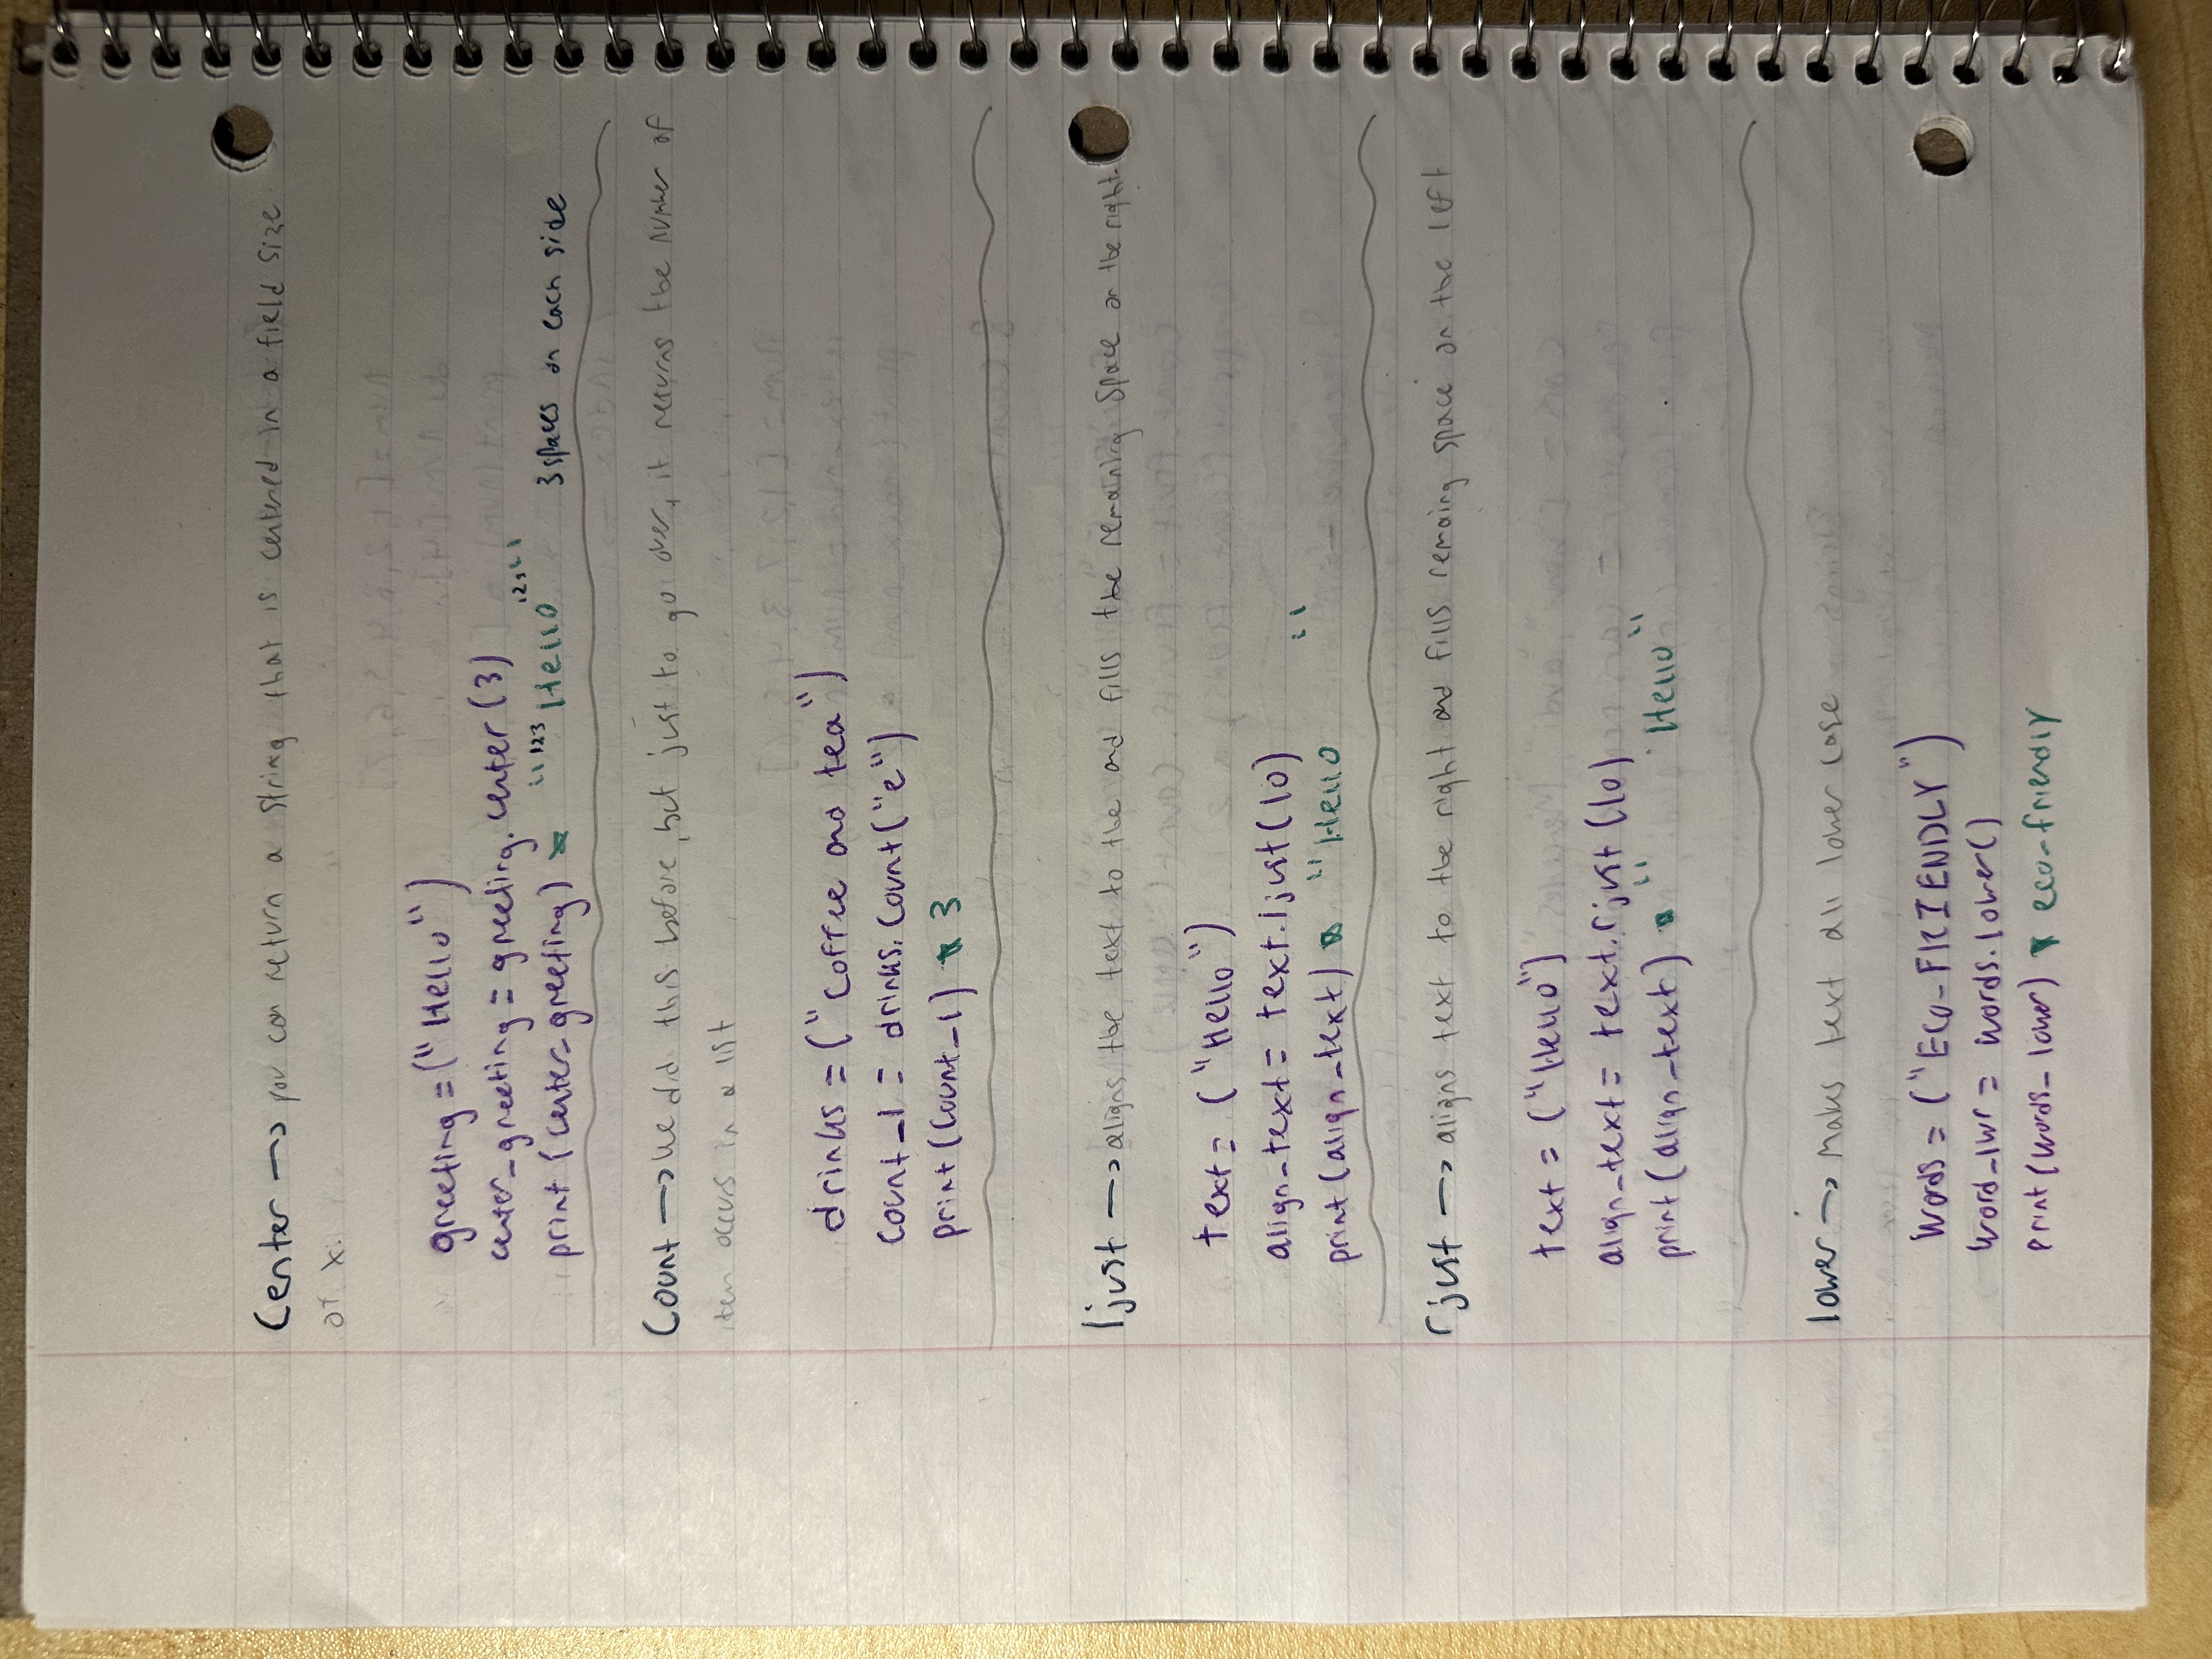 Center → you can return a string that is centered in a field size
of x.
greeting = ("Hello")
center_greeting = greeting.center(3)
print (center_greeting) * "123 Hello 123" 3 spaces on each side
Count → We did this before, but just to go over, it returns the number of
item occurs in a list
drinks = ("Coffee and tea")
count_1 = drinks.count("e")
print(count_1) * 3
ljust → aligns the text to the and fills the remaining space on the right.
text = ("Hello")
align_text = text.ljust(10)
print(align_text) * "Hello "
rjust → aligns text to the right and fills remaing space on the left
text = ("Hello")
align_text = text.rjust(10)
print(align_text) * " Hello"
lower → Makes text all lower case
Words = ("ECO-FRIENDLY")
word_lwr = words.lower()
print(words_lower) * eco-friendly